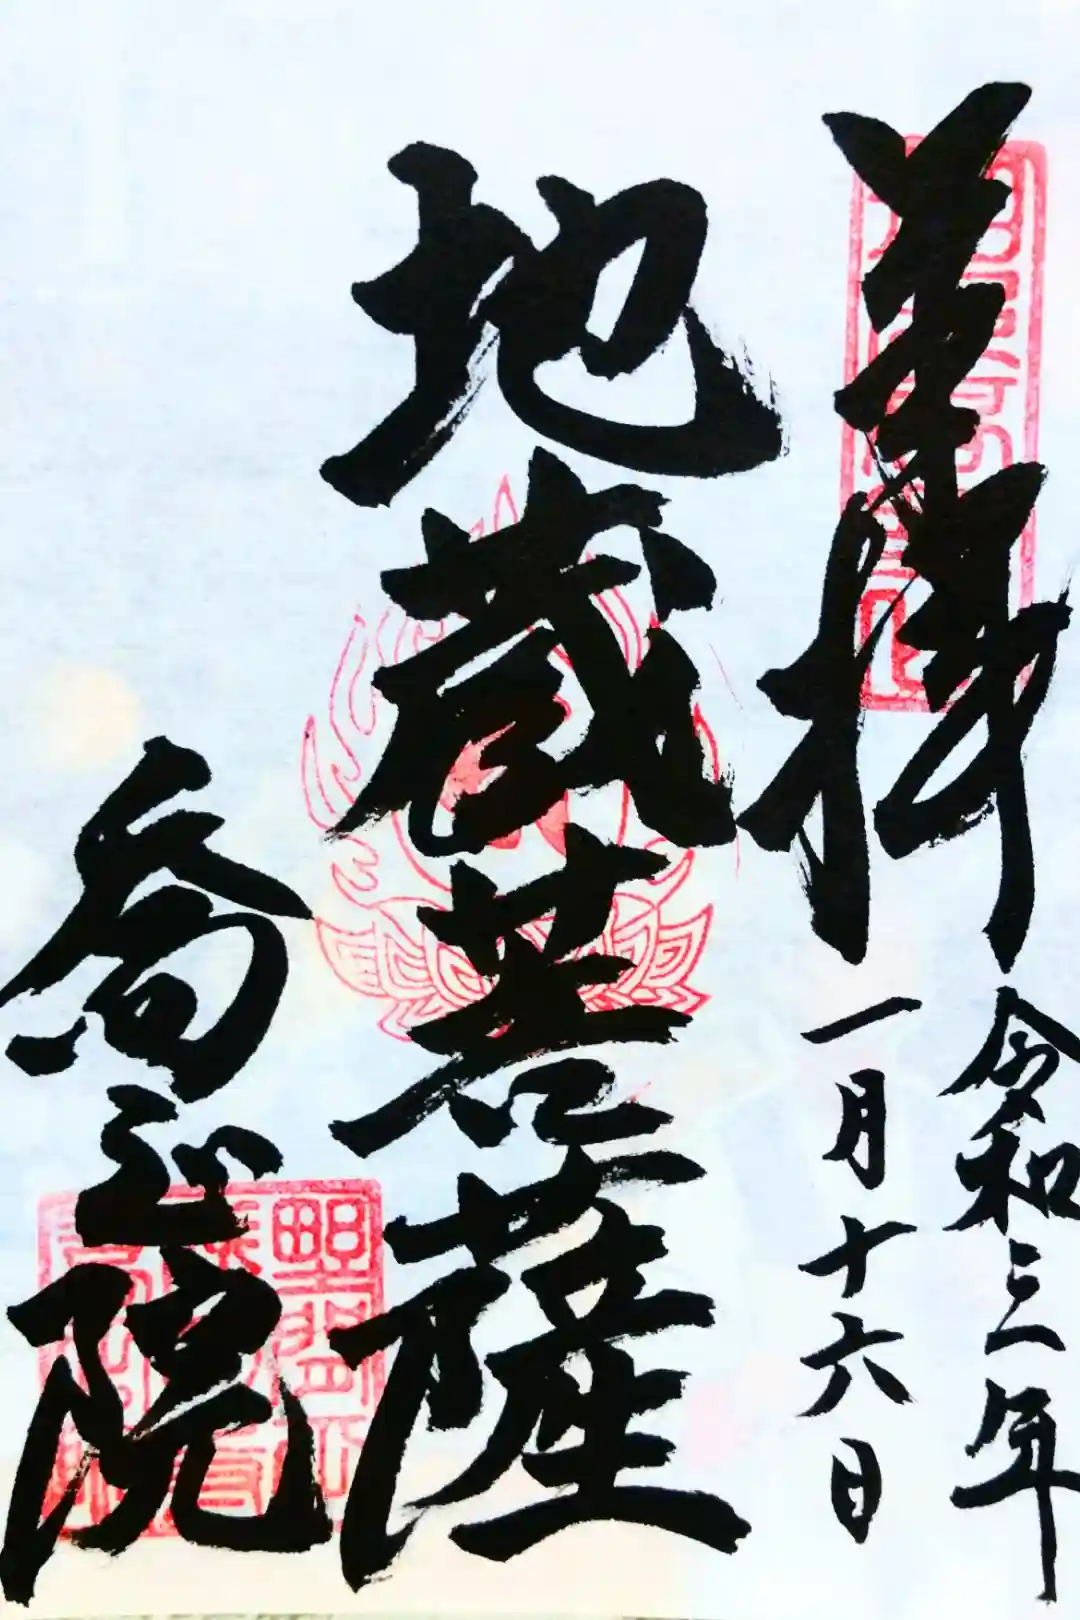 奉拝
令和三年
一月十六日
地蔵菩薩
院